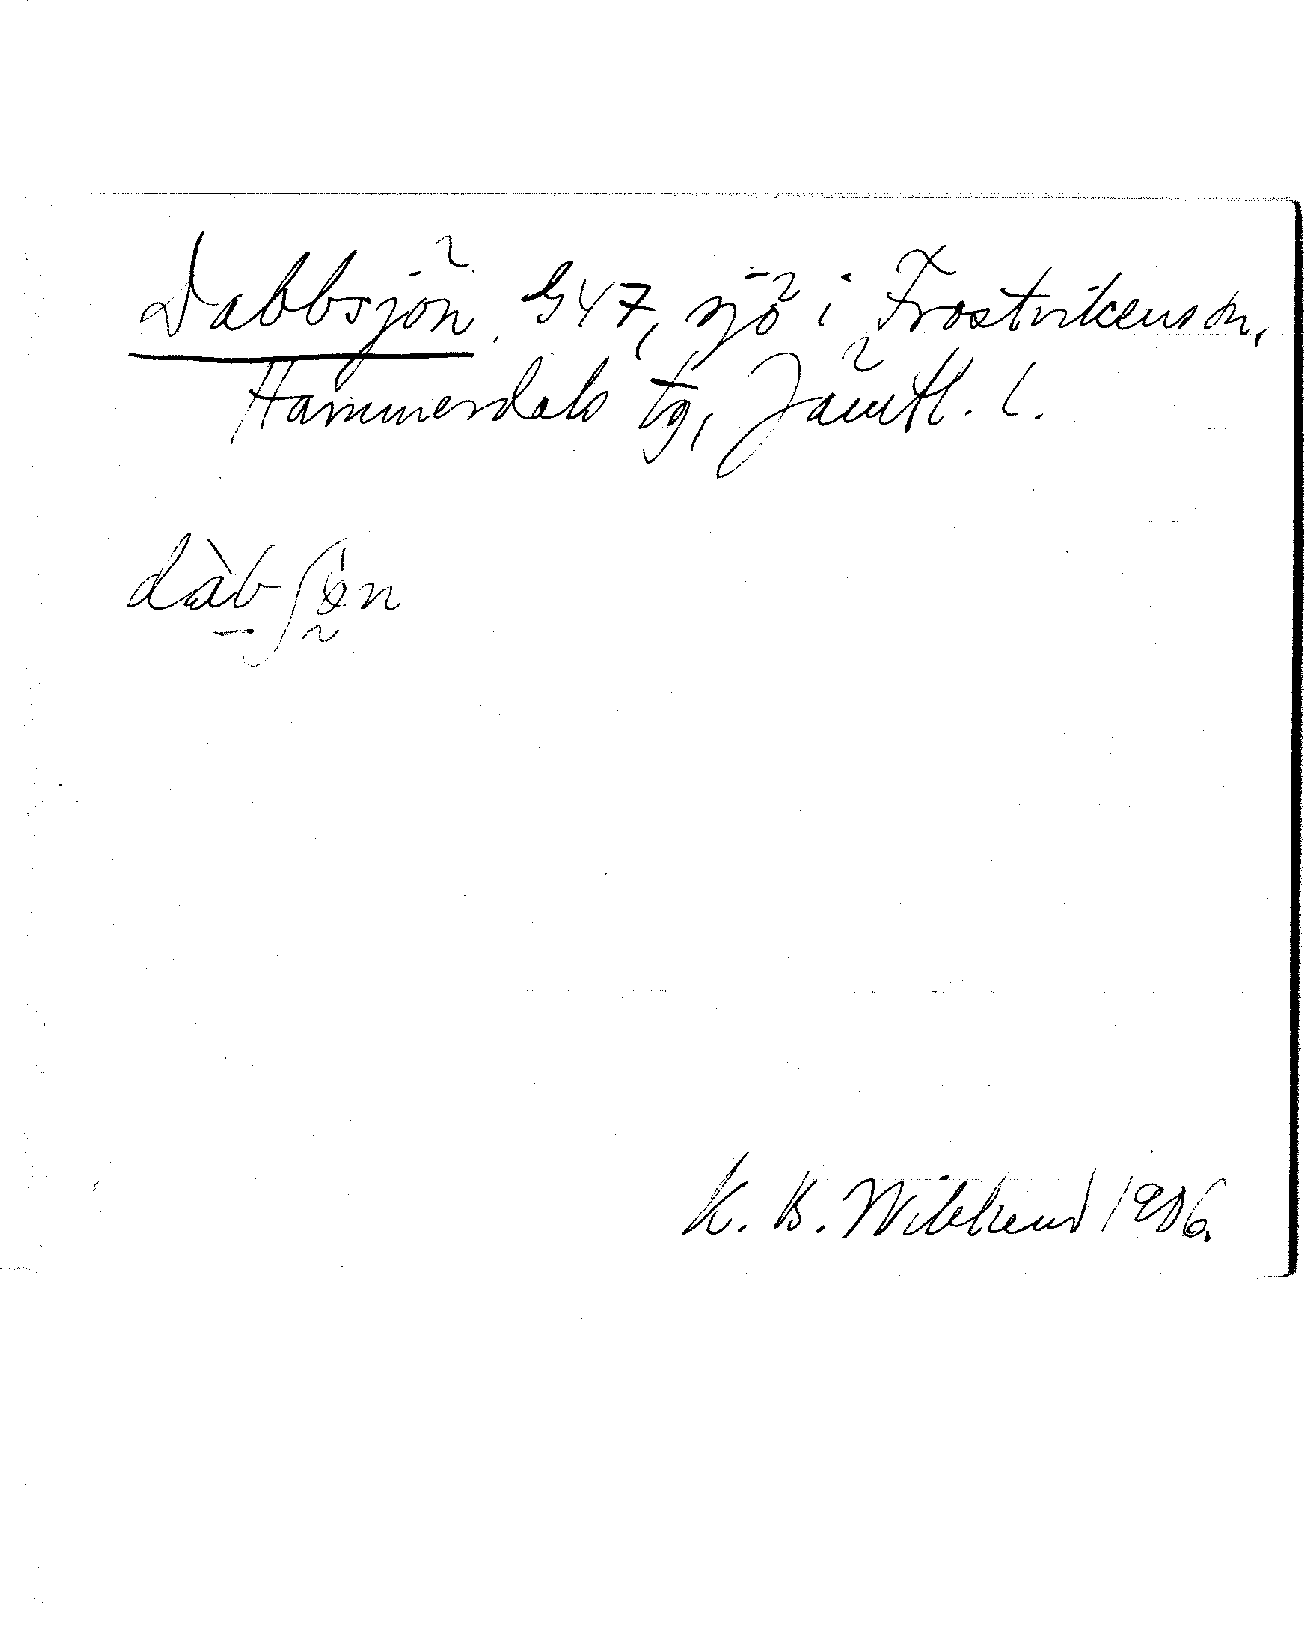 Dabbsjön, G47, sjö i Frostvikens sn,
Hammerdals tg, Jämtl. l.
dàbʃøn
K. B. Wiklund 1906.